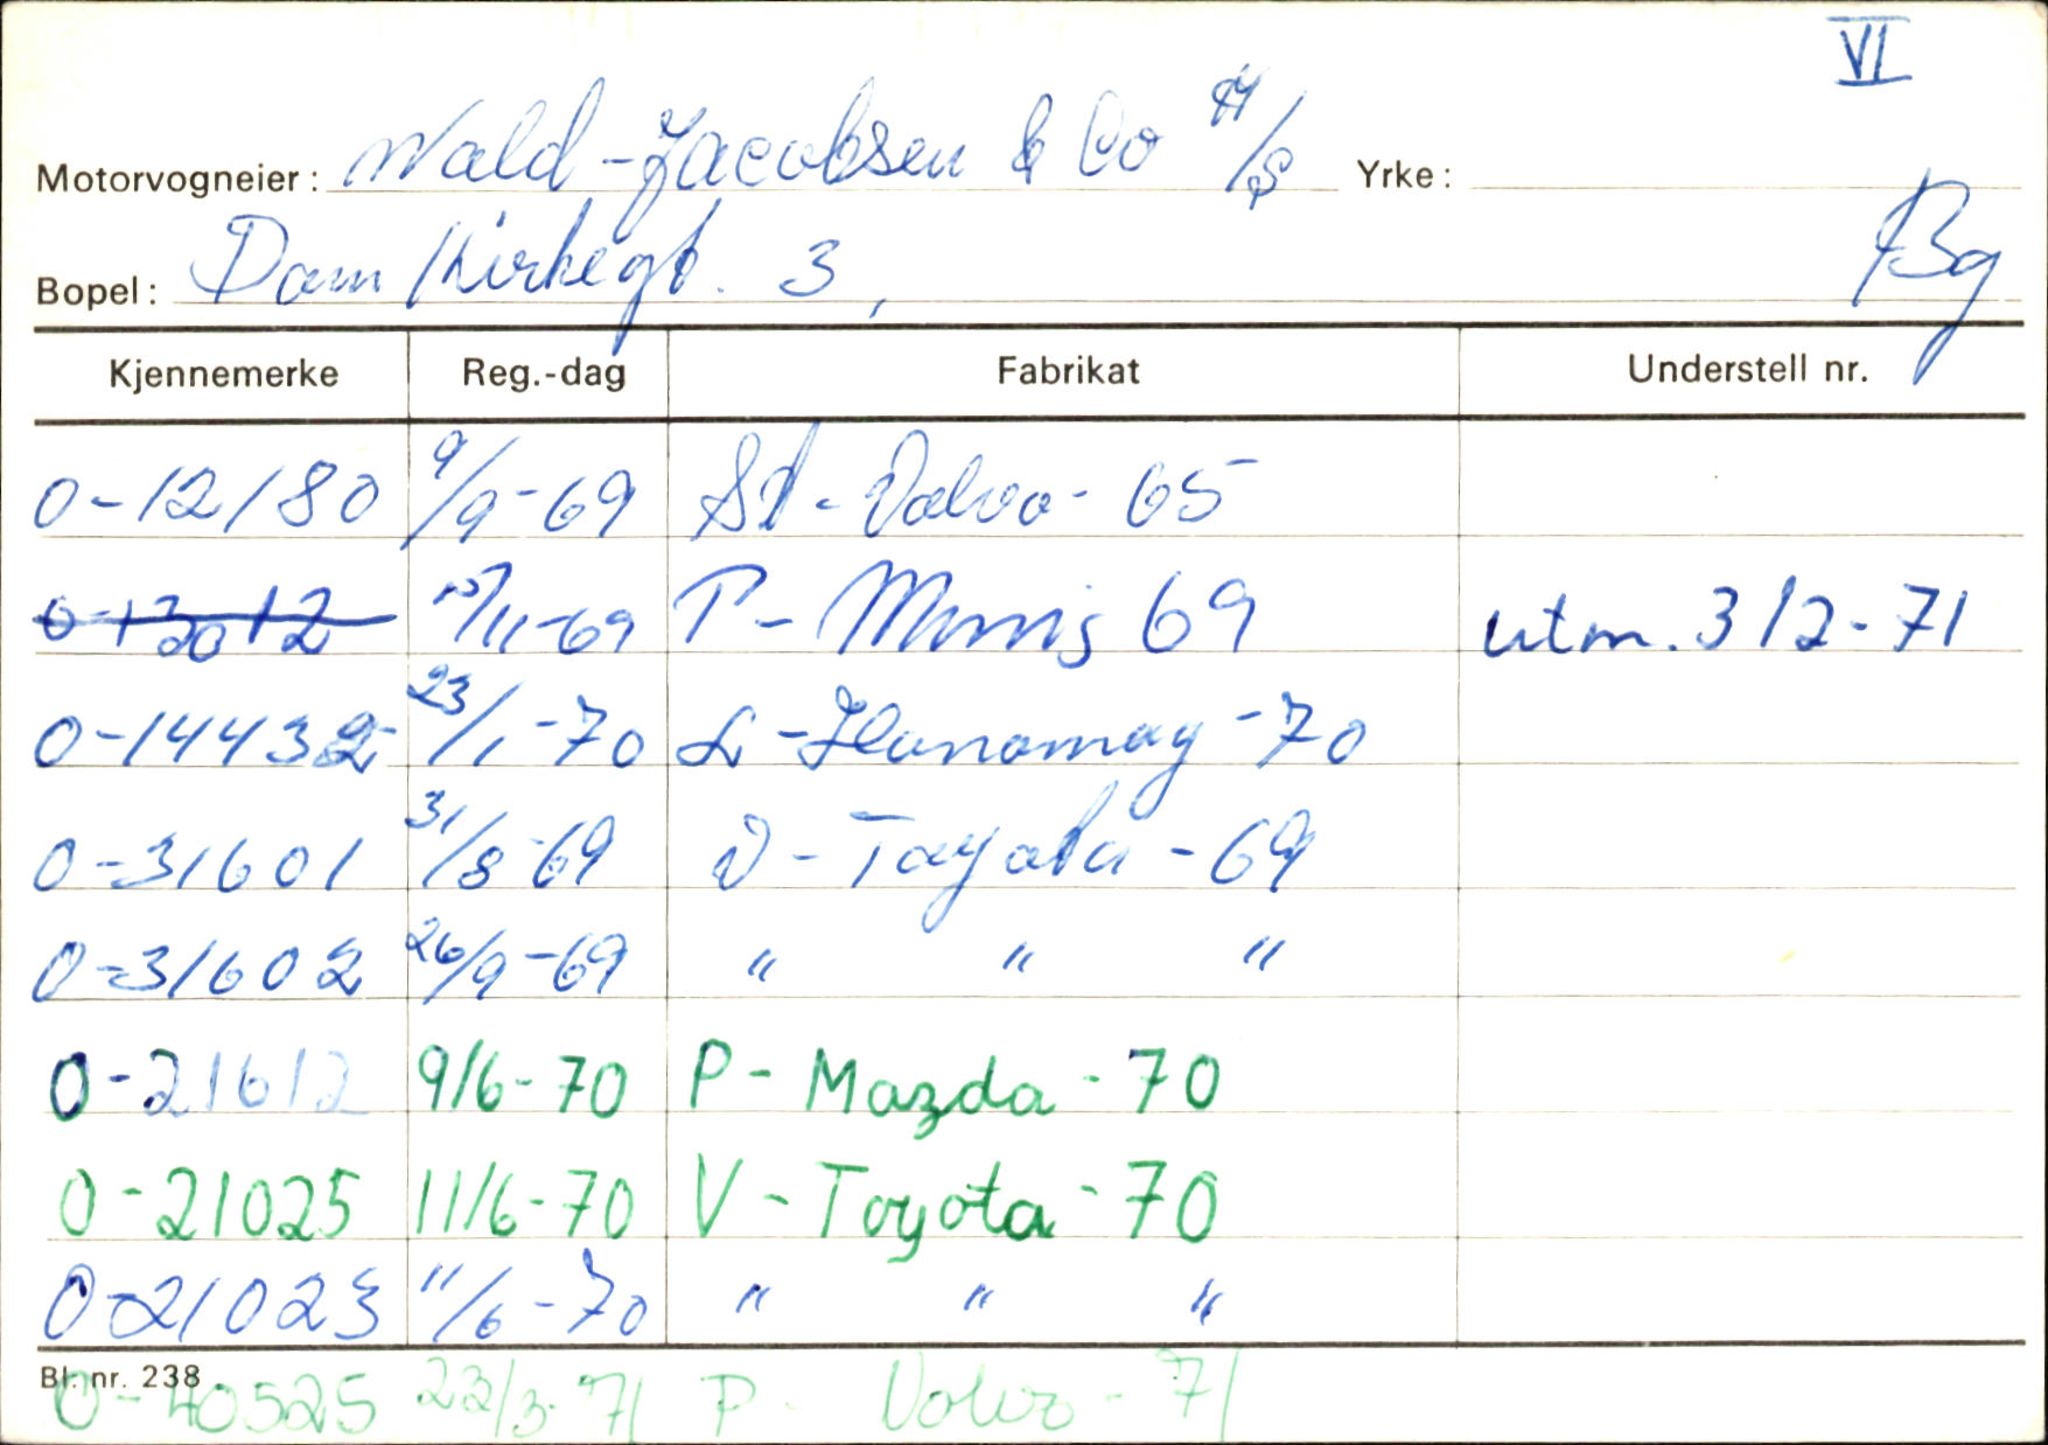 VI
Motorvogneier: Wald-Jacobsen & Co A/S Yrke:
Bopel: Dam Kirkegt. 3, Bg
Kjennemerke Reg.-dag Fabrikat Understell nr.
O-12180 9/9-69 St-Volvo-65
15/11-69 P-Morris 69 utm. 3/2-71
O-14432 23/1-70 L-Hanomag-70
O-31601 31/8-69 V-Toyota-69
O-31602 26/9-69 " " "
O-21612 9/6-70 P-Mazda-70
O-21025 11/6-70 V-Toyota-70
O-21023 11/6-70 " " "
Bl. nr. 238
O-40525 23/3-71 P- Volvo-71